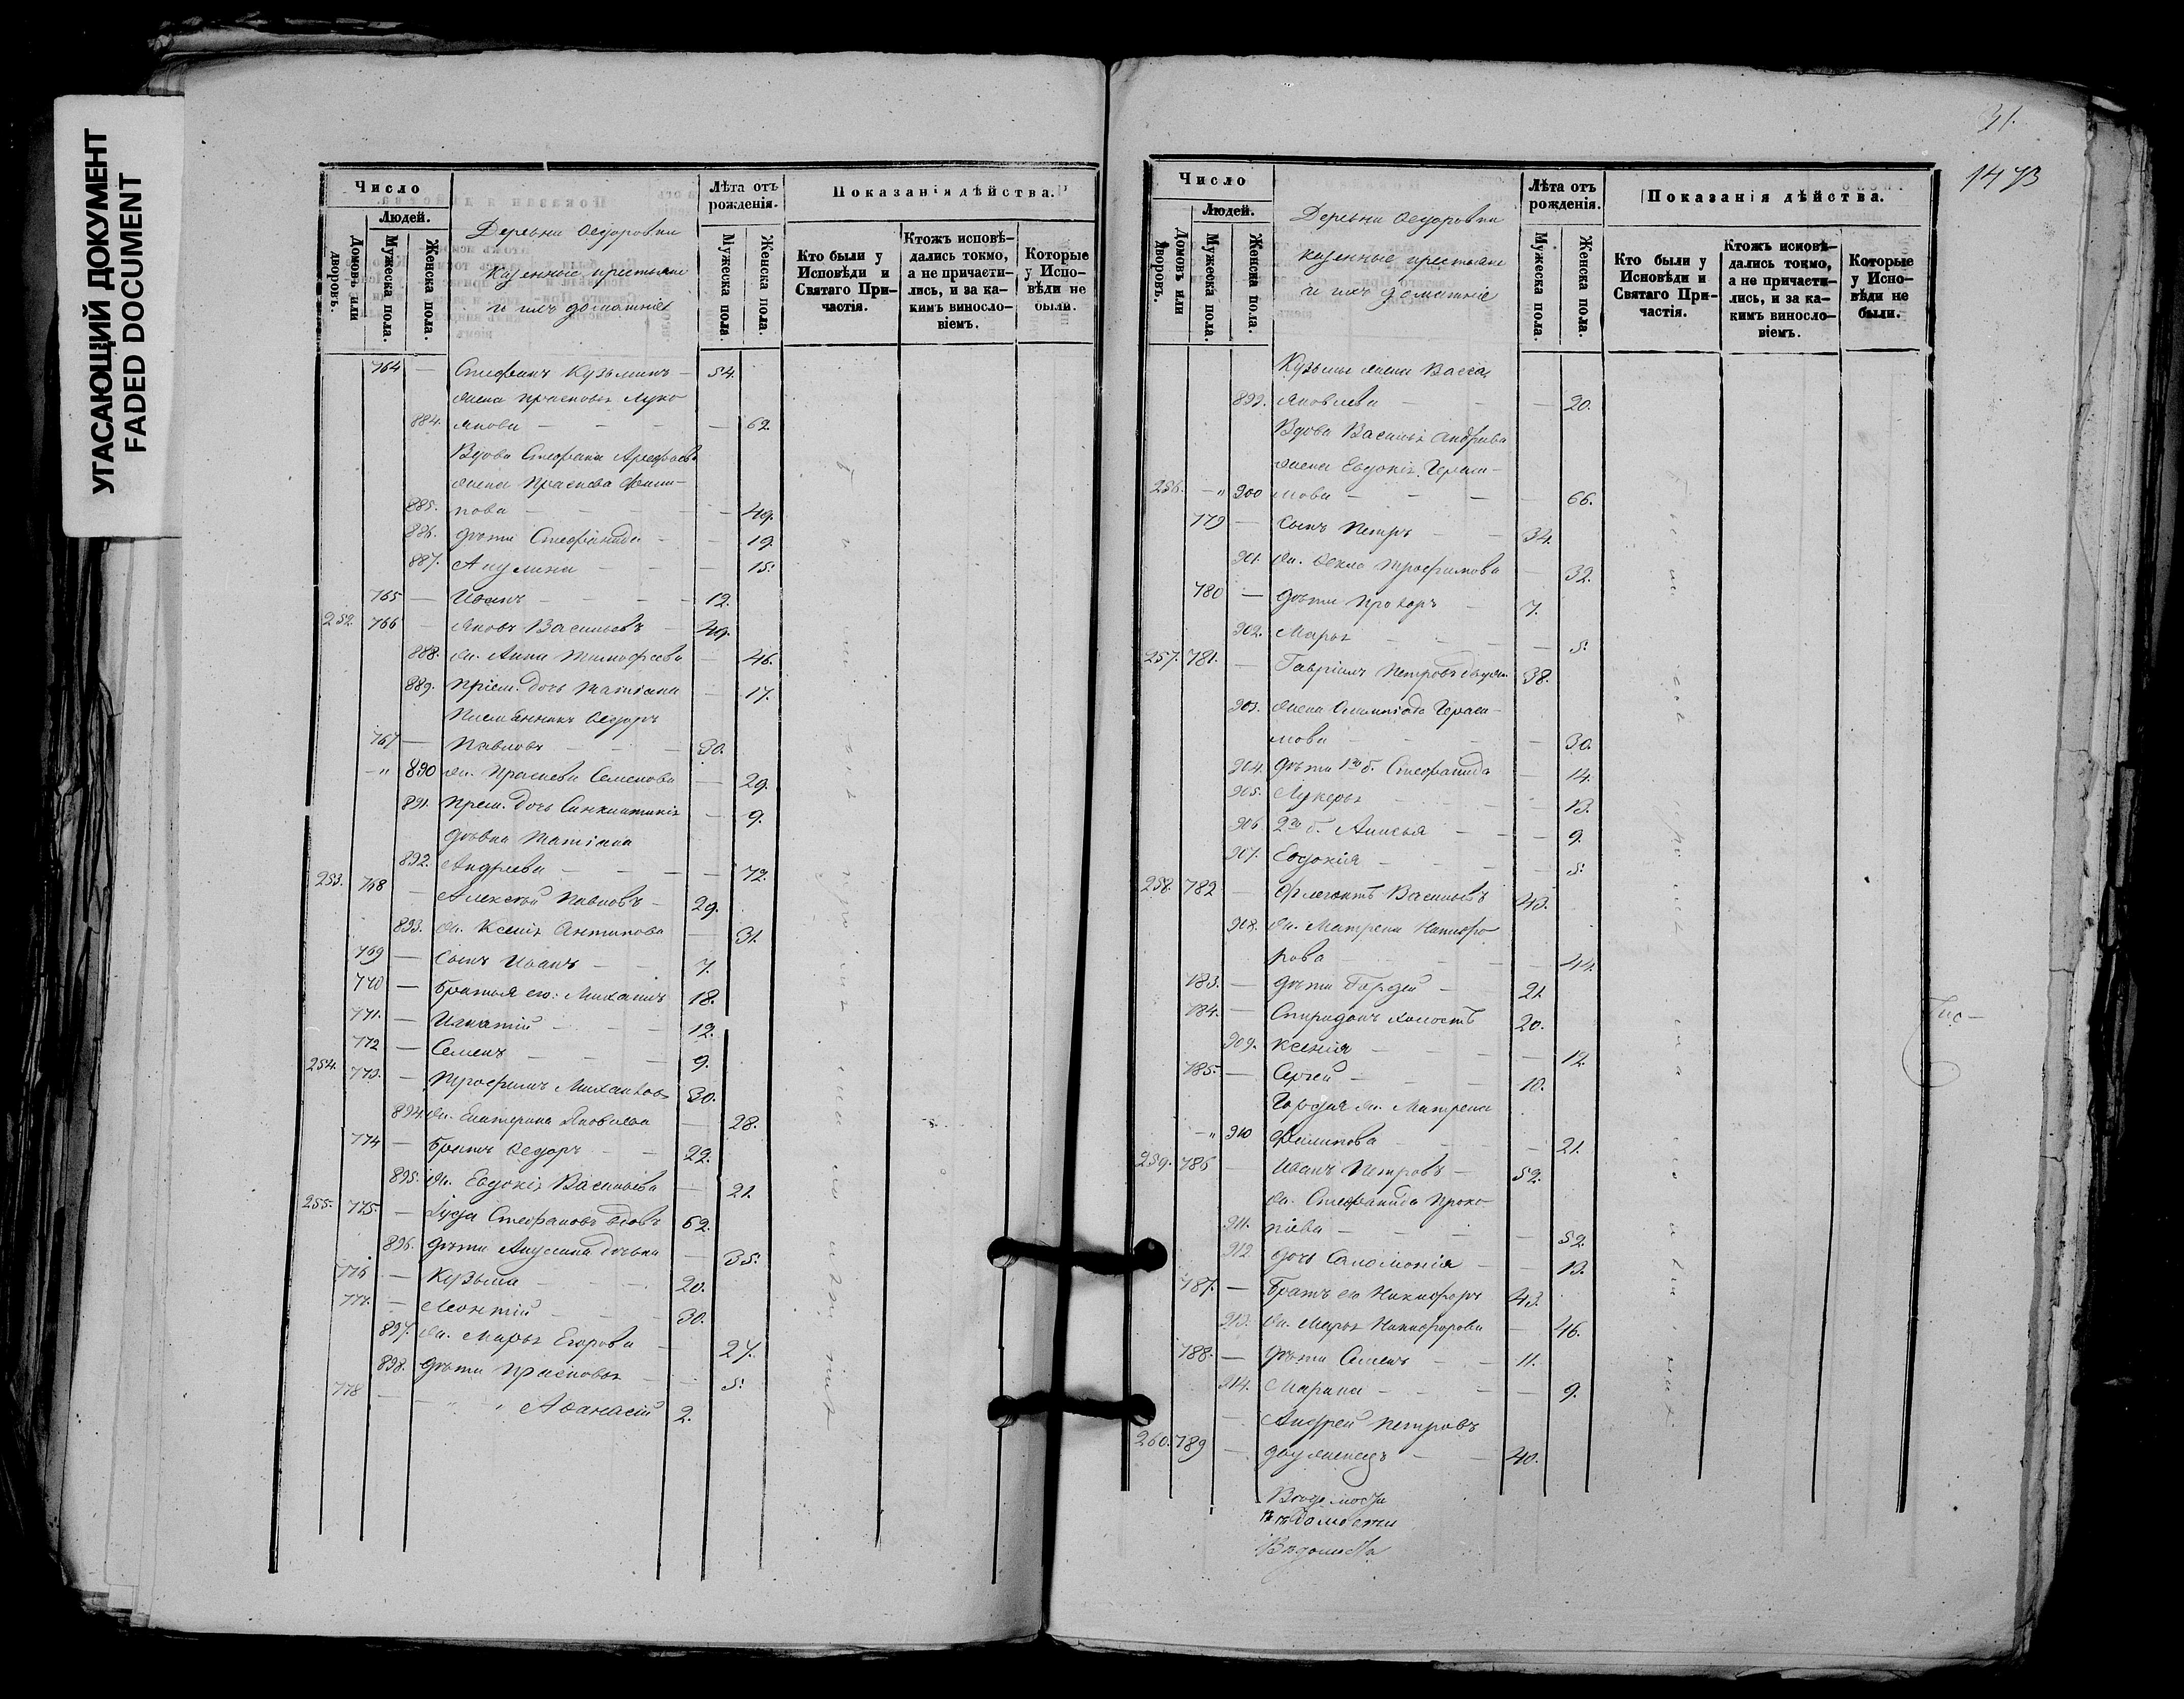 УГАСАЮЩИЙ ДОКУМЕНТ
FADED DOCUMENT
Число
Людей.
Домовъ или дворовъ.
Мужеска пола.
Женска пола.
Деревни Ѳедоровки
Казенные крестьяне
и ихъ домашніе
Лѣта отъ рожденія.
Мужеска пола.
Женска пола.
Показанія дѣйства.
Кто были у Исповѣди и Святаго Причастія.
Ктожъ исповѣдались токмо, а не причастились, и за какимъ винословіемъ.
Которые у Исповѣди не были.
764 — Стефанъ Кузьминъ — 54.
жена Прасковья Луко
884. янова — — — — 62.
Вдова Стефана Арефьева
жена Праскева Филип-
885. пова — — — — 49.
886. дѣти Стефанида — — 19.
887. Акулина — — — 15.
765 — Иванъ — — — 12.
252. 766 — Яковъ Васильевъ — 49.
888. жн. Анна Тимофеева — 46.
889. Пріем. дочь Татіана — 17.
Племянникъ Ѳедоръ
767 — Павловъ — — — 30.
—" 890 жн. Праскева Семенова — 29.
891. Прiем. дочь Синклитикія — 9.
дѣвка Татіана
892. Андреева — — — — 72.
253. 768 — Алексѣй Павловъ — 29.
893. жн. Ксенія Антипова — 31.
769 — Сынъ Иванъ — — 7.
770 — Братья его: Михаилъ 18.
771. — Игнатій — — — 12.
772 — Семенъ — — — 9.
254. 773. — Трофимъ Михайловъ 30.
894. жн. Екатерина Яковлева — 28.
774 — Братъ Ѳедоръ — — 22.
895. жн. Евдокія Васильева — 21.
255. 775 — Іуда Стефановъ вдовъ 62.
896. дѣти Акулина дѣвка — 35.
776 — Кузьма — — — 20.
777. — Леонтій — — — 30.
897. жн. Марья Егорова — — 27.
898. дѣти Прасковья — — 5.
778 — — " " Аѳанасій 2.
31.
1473
Число
Людей.
Домовъ или дворовъ.
Мужеска пола.
Женска пола.
Деревни Ѳедоровки
казенные крестьяне
и ихъ домашніе
Лѣта отъ рожденія.
Мужеска пола.
Женска пола.
Показанія дѣйства.
Кто были у Исповѣди и Святаго Причастія.
Ктожъ исповѣдались токмо, а не причастились, и за какимъ винословіемъ.
Которые у Исповѣди не были.
Кузьмы жена Васса
899. Яковлева — — — 20.
Вдова Василья Андреева
жена Евдокія Гераси-
256. —" 900 мова — — — — 66.
779 — Сынъ Петръ — — 34.
901. жн. Ѳекла Трофимова — 32.
780 — дѣти Прохоръ — 7.
902. Марья — — — — 5.
257. 781. — Гавріилъ Петровъ 38.
903. жена Олимпіада Гераси-
мова — — — — 30.
904. дѣти 1го б. Стефанида — 14.
905. Лукерья — — — — 13.
906. 2го б. Анисья — — — 9.
907. Евдокія — — — — 5.
258. 782 — Флегонтъ Васильевъ 43.
908. жн. Матрена Никифо
рова — — — — 44.
783. — дѣти Гордѣй — 21.
784. — Спиридонъ холостъ 20.
909. Ксенія — — — — 12.
785. — Сергѣй — — — 10.
Гордѣя жн. Матрена
—" 910 Филипова — — — 21.
259. 786 — Иванъ Петровъ — 52.
жн. Стефанида Проко
911. піева — — — — 52.
912. дочь Саломонія — — 13.
787. — Братъ его Никифоръ 43.
913. жн. Марья Никифорова — 46.
788. — дѣти Семенъ — — 11.
914. Марина — — — — 9.
Андрей Петровъ
260. 789 — двуженецъ — — 40.